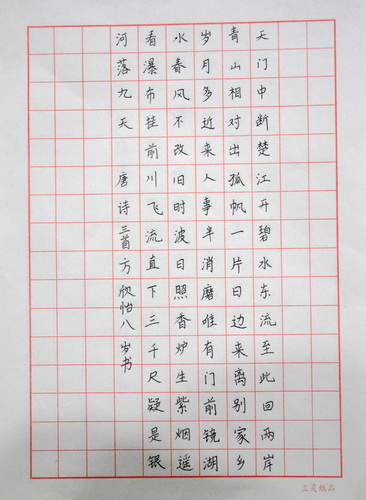 天门中断楚江开碧水东流至此回两岸
青山相对出孤帆一片日边来离别家乡
岁月多近来人事半消磨唯有门前镜湖
水春风不改旧时波日照香炉生紫烟遥
看瀑布挂前川飞流直下三千尺疑是银
河落九天 唐诗三首方欣怡八岁书
三灵纸品